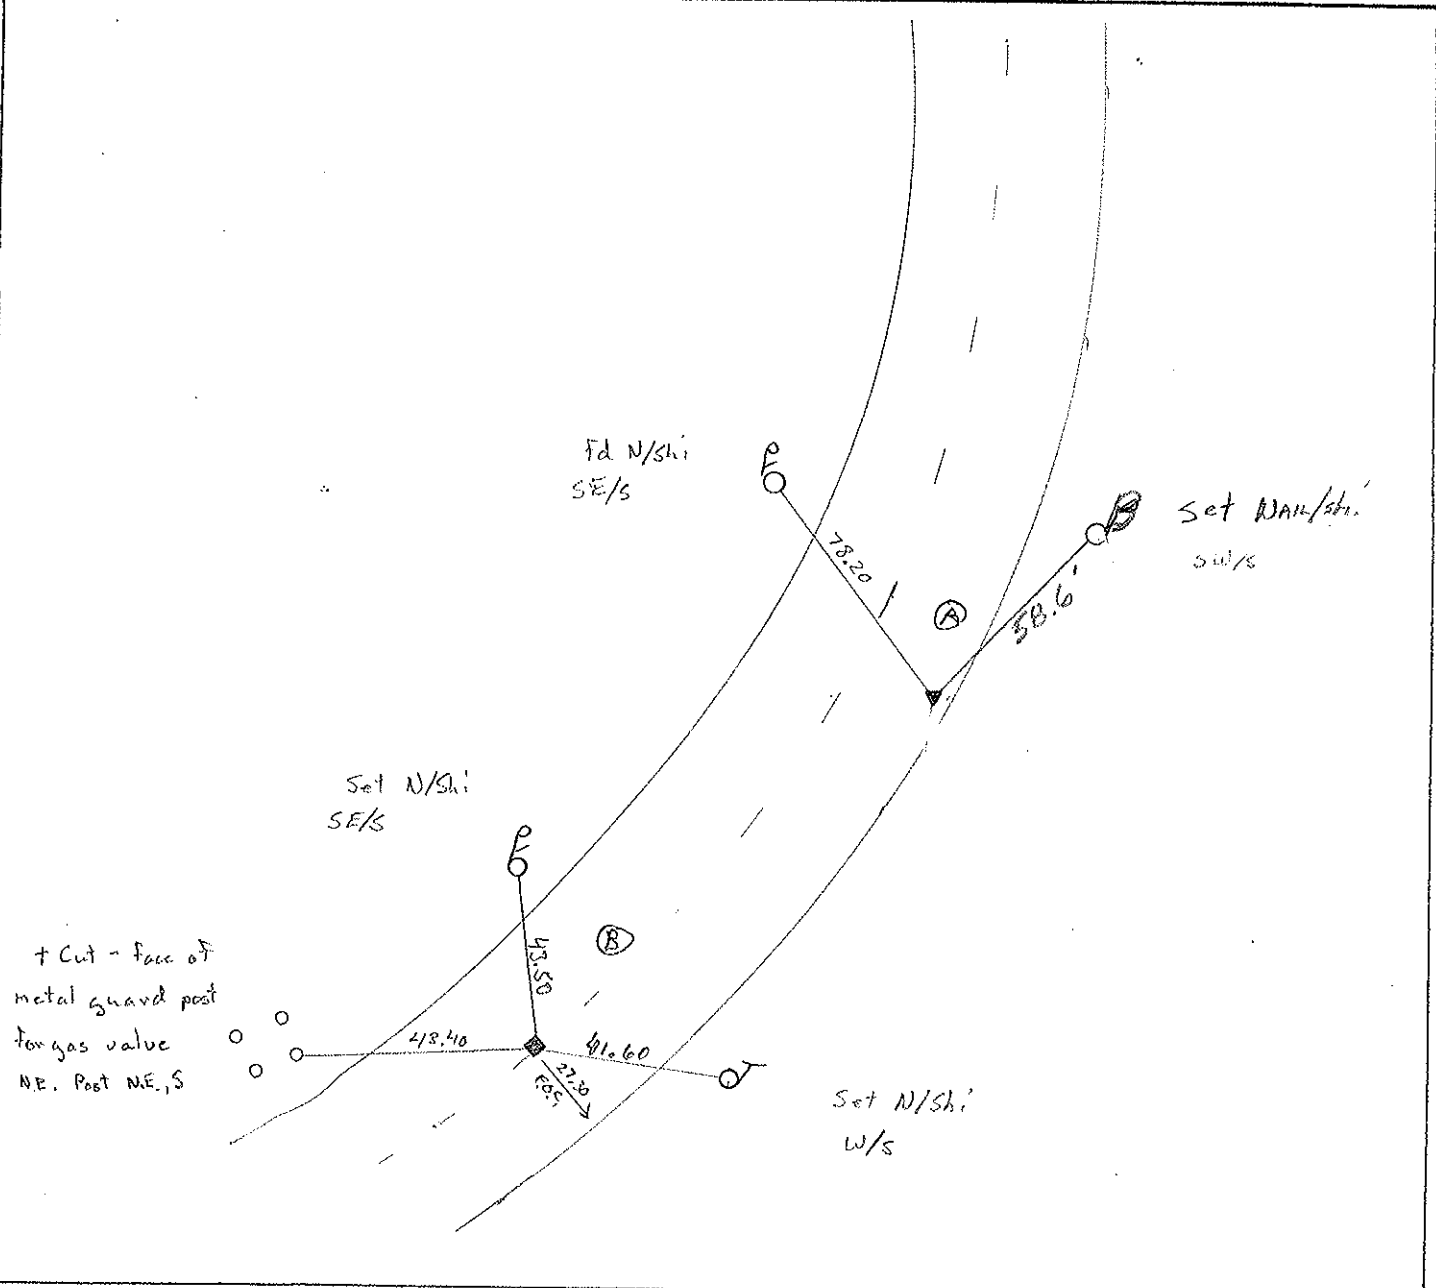 Fd N/Shi
SE/S
Set Nail/Shi
SW/S
78.20
A
58.6'
Set N/Shi
SE/S
B
43.50
+ Cut - face of
metal guard post
for gas value
N.E. Post N.E., S
43.40
41.60
27.30
Set N/Shi
W/S